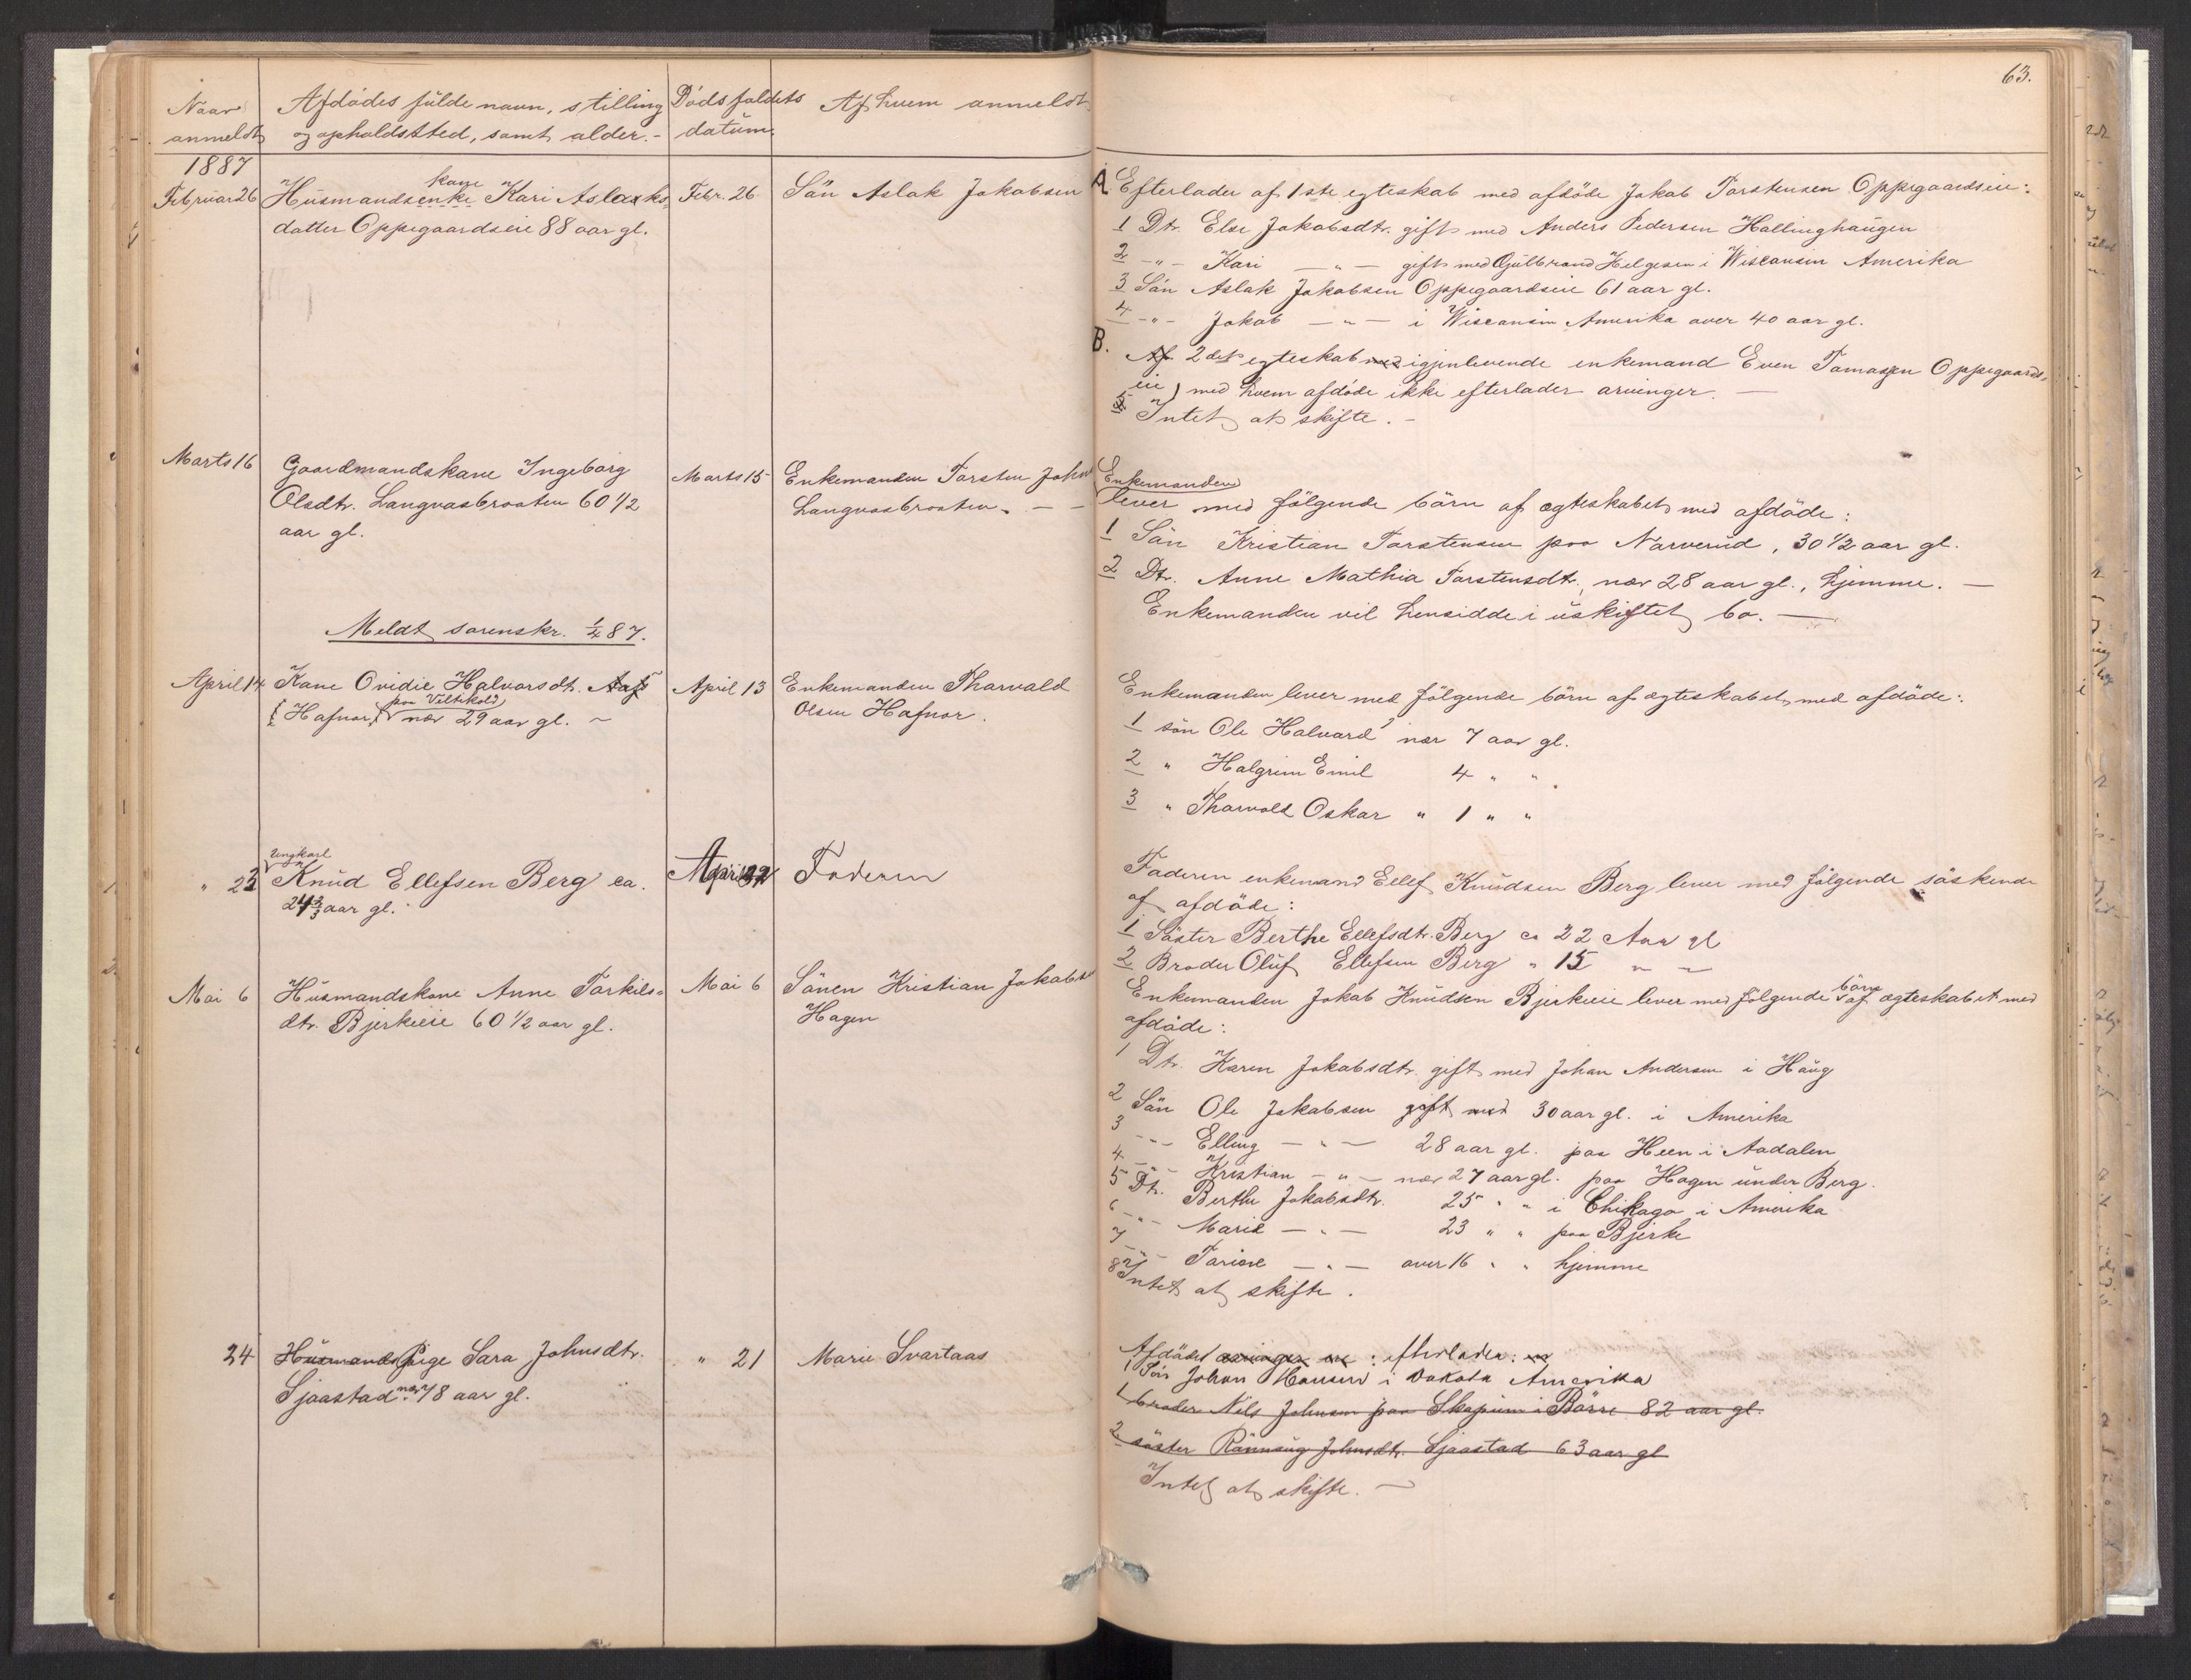 63.
Naar Afdödes fulde navn, stilling Dödsfaldets Af hvem anmeldt
anmeldt og opholdssted, samt alder.- datum.
1887
Februar 26 Husmandsenke kone Kari Aslaks- Febr. 26 Sön Aslak Jakobsen
datter Oppegaardseie 88 aar gl.
A Efterlader af 1ste egteskab med afdöde Jakob Torstensen Oppegaardseie:
1 Dtr. Else Jakobsdtr. gift med Anders Pedersen Hallinghaugen
2 -"- Kari -"- gift med Gulbrand Helgesen i Wisconsin Amerika
3 Sön Aslak Jakobsen Oppegaardseie 61 aar gl.
4 -"- Jakob -"- i Wisconsin Amerika over 40 aar gl.
B. Af 2det egteskab med igjenlevende enkemand Even Tomassen Oppegaards-
eie, med hvem afdöde ikke efterlader arvinger. -
5 Intet at skifte. -
Marts 16 Gaardmandskone Ingeborg Marts 15 Enkemanden Torsten Johns
Olsdtr. Langvasbraaten 60 1/2 Langvasbraaten. - -
aar gl.
Enkemanden
lever med fölgende börn af ægteskabet med afdöde:
1 Sön Kristian Torstensen paa Narverud, 30 1/2 aar gl.
2 Dtr. Anne Mathia Torstensdtr. nær 28 aar gl., hjemme. -
Enkemanden vil hensidde i uskiftet bo. -
Meldt sorenskr. 1/4 87.
April 14 Kone Ovidie Halvorsdt. April 13 Enkemanden Tharvald
Hafnor, paa Veltikold nær 29 aar gl. - Olsen Hafnor.
Enkemanden lever med fölgende börn af ægteskabet med afdöde:
1 sön Ole Halvard nær 7 aar gl.
2 " Halgrim Emil 4 " "
3 " Tharvald Oskar " 1 " "
Ungkarl
" 23 Knud Ellefsen Berg ca. April 22 Faderen
24 2/3 aar gl.
Faderen enkemand Ellef Knudsen Berg lever med fölgende söskende
af afdöde:
1 Söster Berthe Ellefsdtr. Berg ca 22 Aar gl
2 Broder Oluf Ellefsen Berg " 15 " "
Mai 6 Husmandskone Anne Torkils- Mai 6 Sönen Kristian Jakobsen
dtr. Bjerkeeie 60 1/2 aar gl. Hagen
Enkemanden Jakob Knudsen Bjerkeeie lever med fölgende börn af ægteskabet med
afdöde:
1 Dtr. Karen Jakobsdtr. gift med Johan Andersen i Haug
2 Sön Ole Jakobsen gift med 30 aar gl. i Amerika
3 -"- Elling -"- 28 aar gl. paa Heen i Aadalen
4 -"- Kristian -"- nær 27 aar gl. paa Hagen under Berg.
5 Dtr. Berthe Jakobsdtr. 25 " " i Chikago i Amerika
6 -"- Marie -"- 23 " " paa Bjerke
7 -"- Torine -"- over 16 " " hjemme
8 Intet at skifte.
24 Husmands Pige Sara Johnsdtr. " 21 Marie Svartaas
Sjaastad nær 78 aar gl.
Afdödes arvinger ere : efterlader:
1 Sön Johan Hansen i Dakota Amerika
1 broder Nils Johnsen paa Skapum i Börre 82 aar gl.
2 söster Rönnaug Johnsdtr. Sjaastad 63 aar gl
Intet at skifte. -